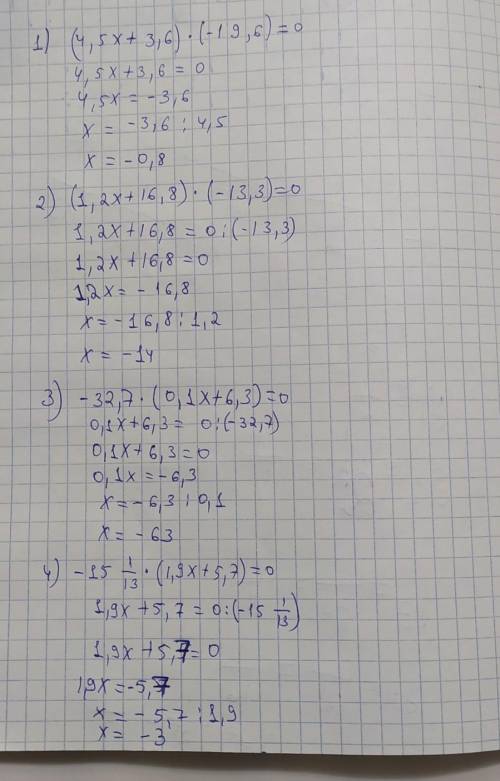 1) (4,5x+3,6)·(-19,6)=0
4,5x+3,6=0
4,5x=-3,6
x=-3,6:4,5
x=-0,8
2) (1,2x+16,8)·(-13,3)=0
1,2x+16,8=0:(-13,3)
1,2x+16,8=0
1,2x=-16,8
x=-16,8:1,2
x=-14
3) -32,7·(0,1x+6,3)=0
0,1x+6,3=0:(-32,7)
0,1x+6,3=0
0,1x=-6,3
x=-6,3:0,1
x=-63
4) -15 1/13·(1,9x+5,7)=0
1,9x+5,7=0:(-15 1/13)
1,9x+5,7=0
1,9x=-5,7
x=-5,7:1,9
x=-3